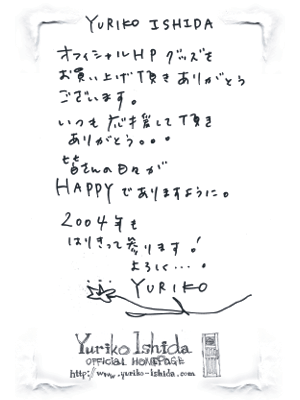 YURIKO ISHIDA
オフィシャルHPグッズを
お買い上げ頂きありがとう
ございます。
いつも応援して頂き
ありがとう。。。
皆さんの日々が
HAPPYでありますように。
2004年も
はりきって参ります!
よろしく…。
YURIKO
Yuriko Ishida
OFFICIAL HOMEPAGE
http://www.yuriko-ishida.com